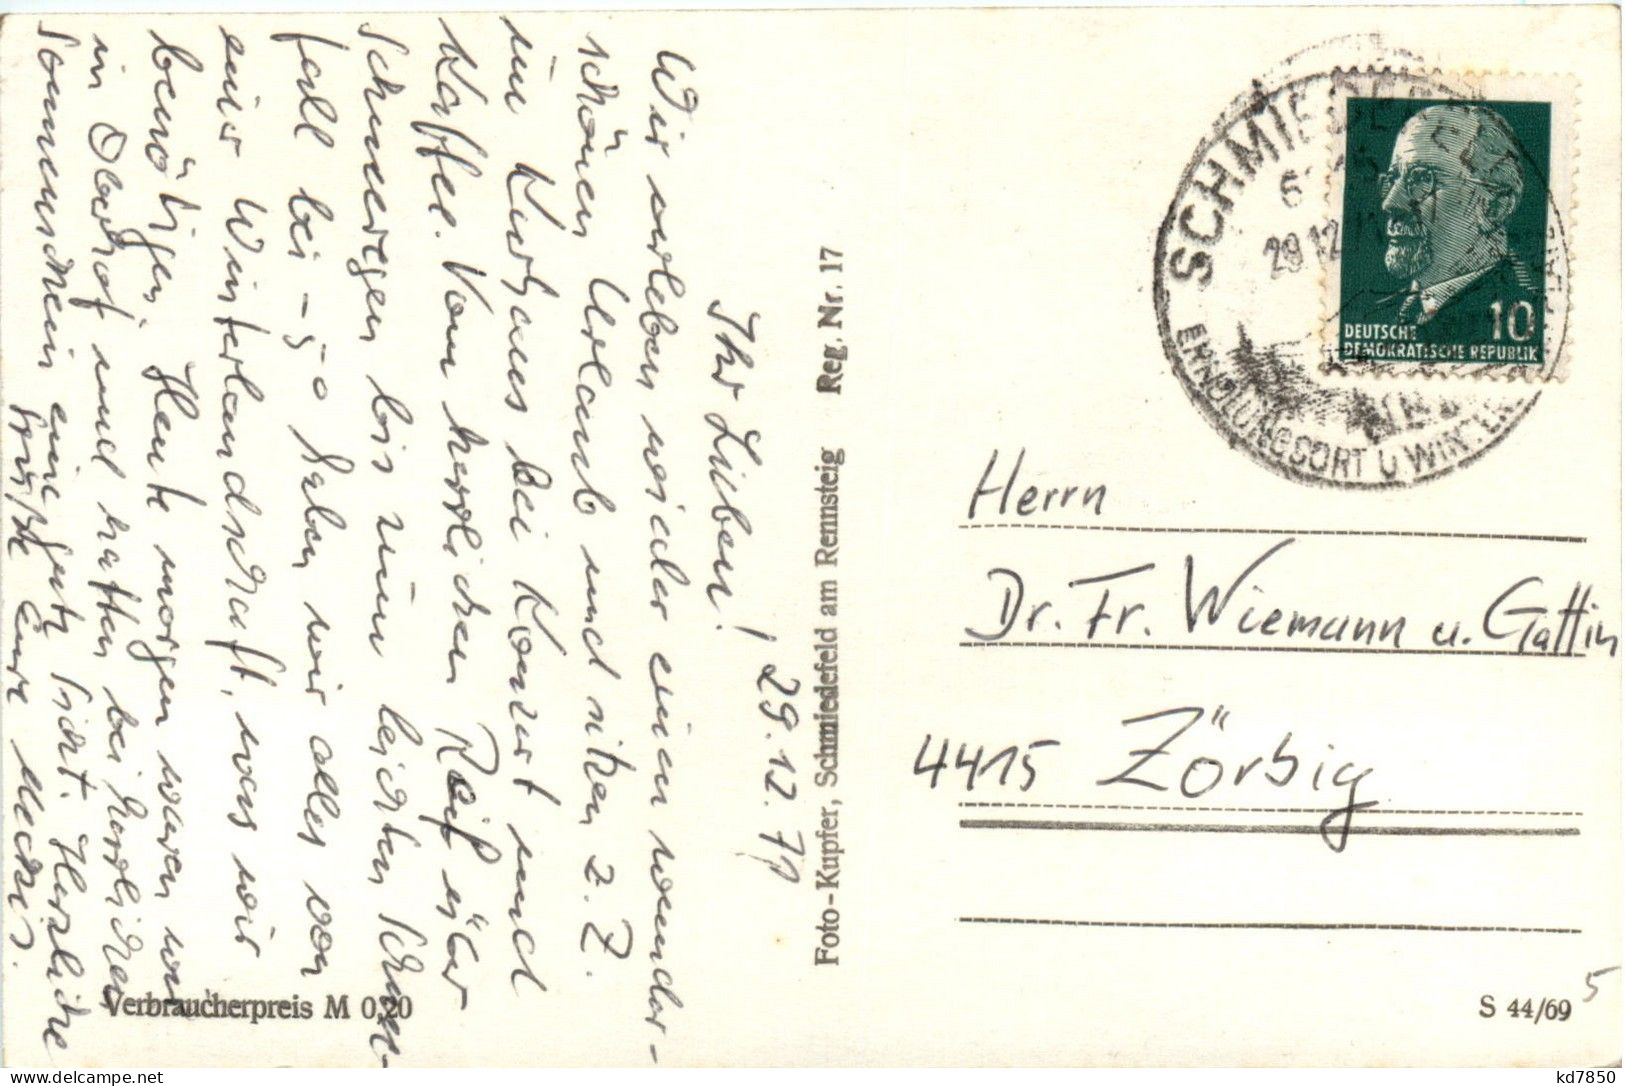 29.12.70
Ihr Lieben!
Wir erleben wieder einen wunder-
schönen Urlaub und sitzen z. Z.
im Kurhaus bei Konzert und
Kaffee. Vom herrlichen Reif über
Schneeregen bis zum leichten Schnee-
fall bei -5° haben wir alles von
einer Winterlandschaft, was wir
benötigen. Heute morgen waren wir
in Oberhof und hatten bei herrlichem
Sonnenschein eine gute Sicht. Herzliche
Grüße Eure
Foto-Kupfer, Schmiedefeld am Rennsteig Reg. Nr. 17
Verbraucherpreis M 0,20
SCHMIEDEFELD
29.12.
ERHOLUNGSORT U. WINTER
10
DEUTSCHE
DEMOKRATISCHE REPUBLIK
Herrn
Dr. Fr. Wiemann u. Gattin
4415 Zörbig
S 44/69
5
kd7850